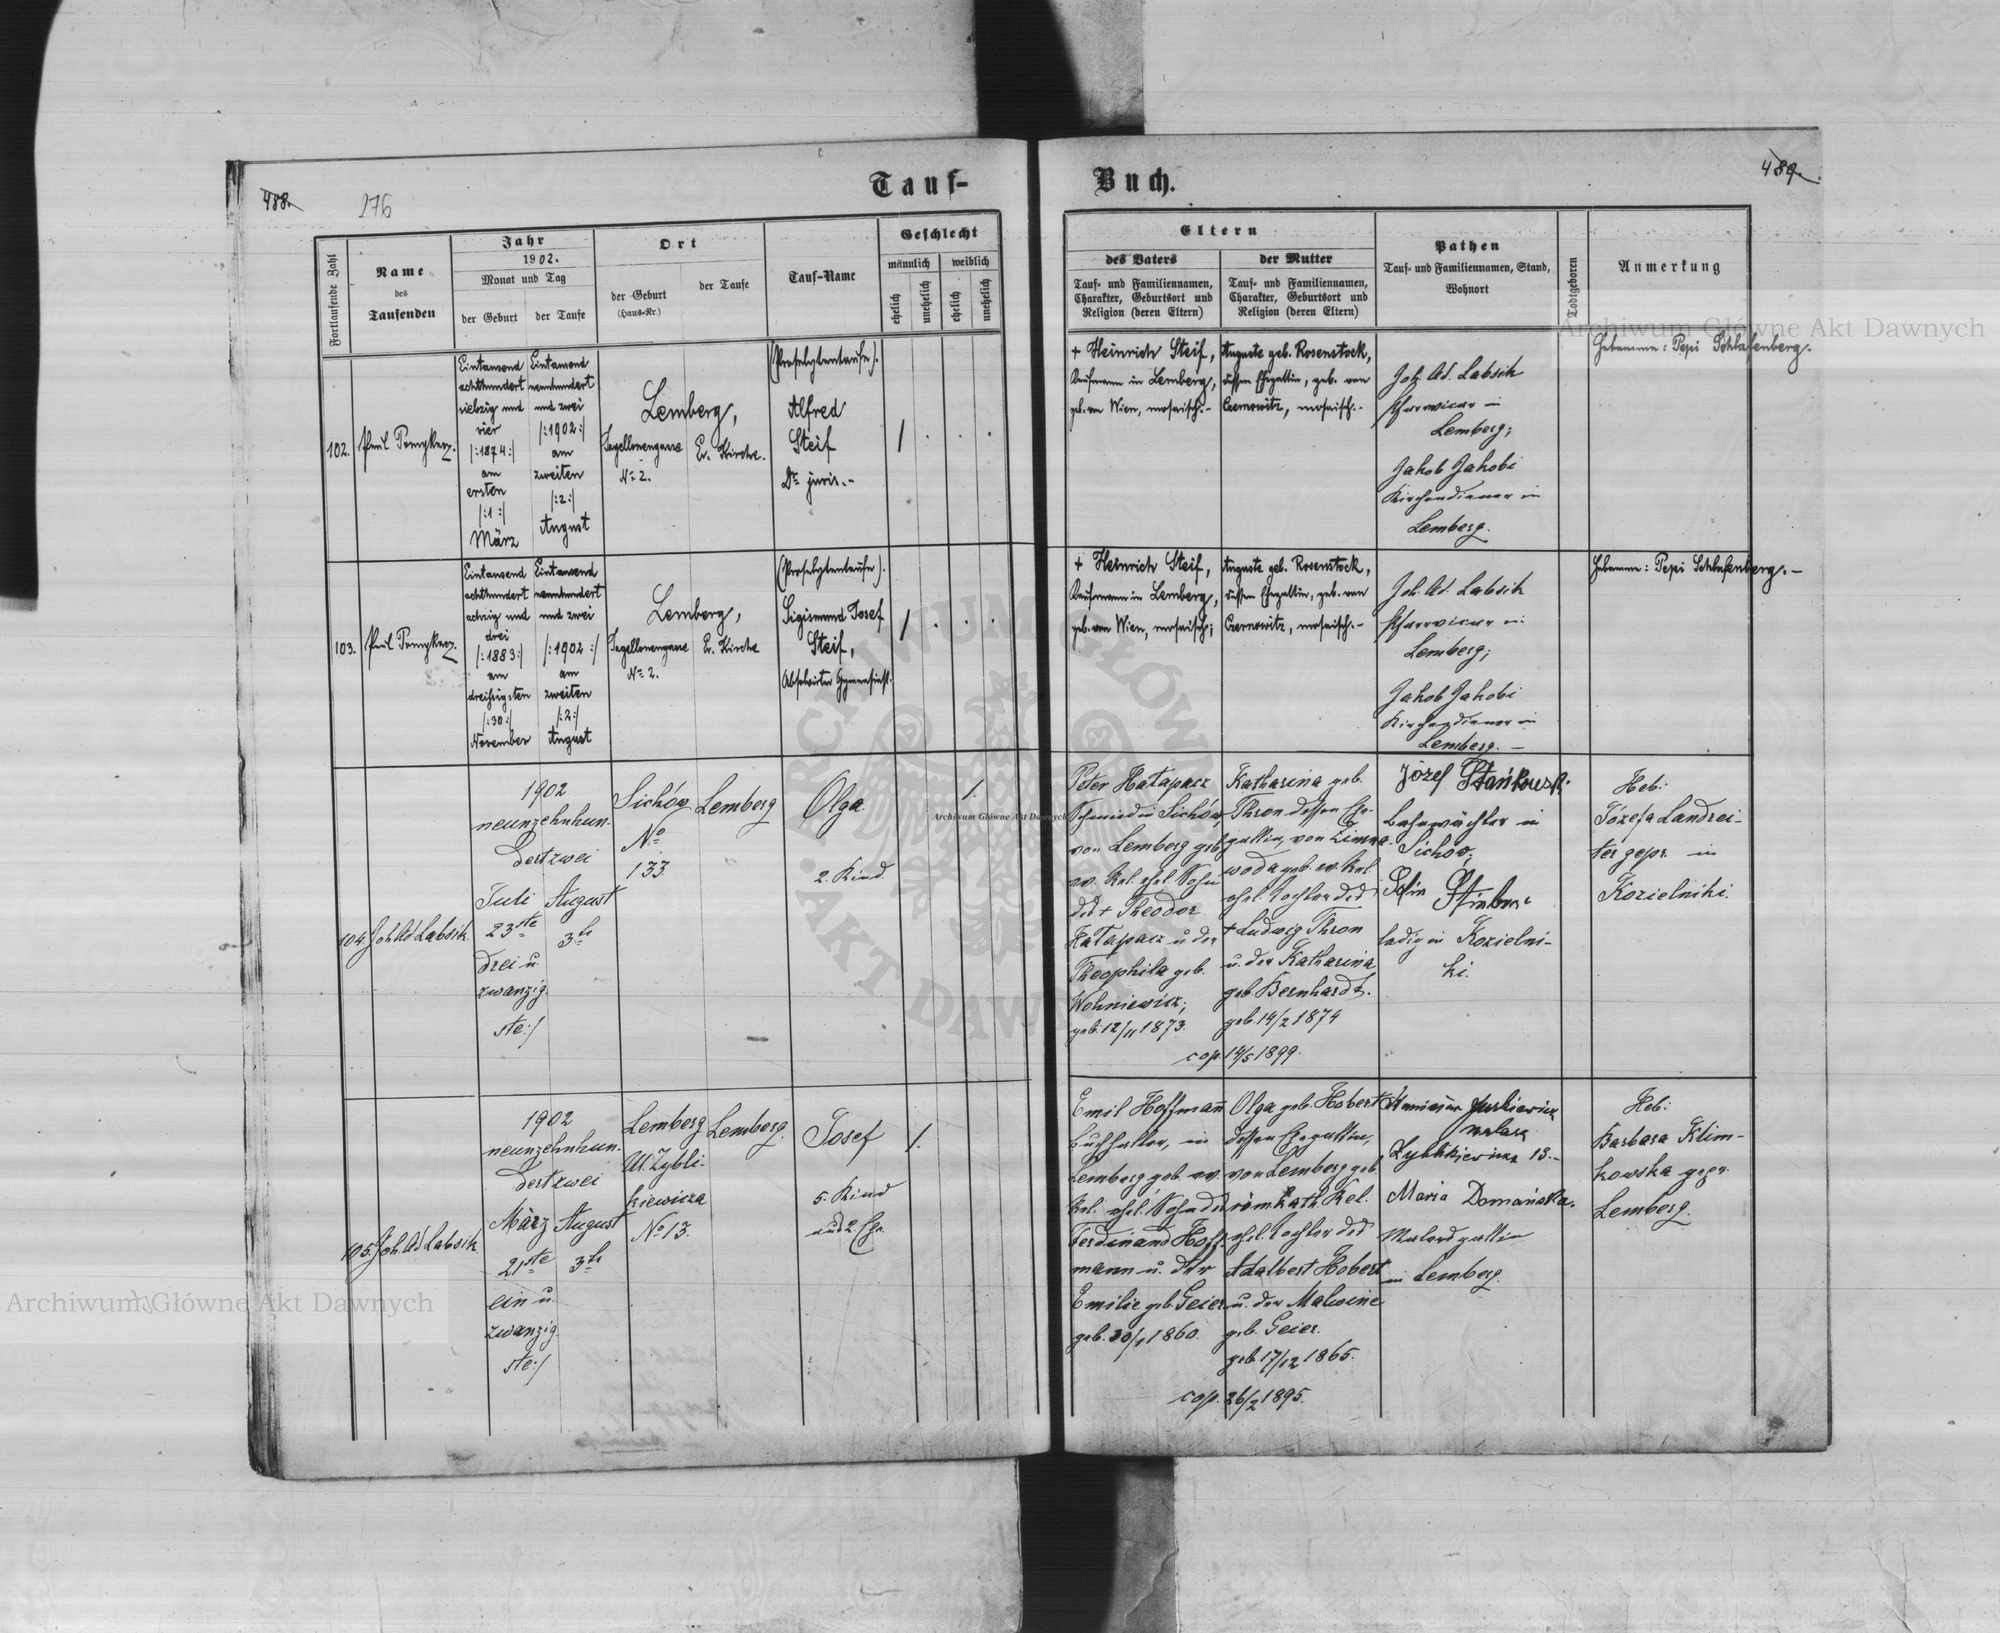 Tauf-
Buch.
488.
276
489.
Fortlaufende Zahl
Name
des
Taufenden
Jahr
1902.
Monat und Tag
der Geburt
der Taufe
Ort
der Geburt
(Haus-Nr.)
der Taufe
Tauf-Name
Geschlecht
männlich
weiblich
ehelich
unehelich
ehelich
unehelich
Eltern
des Vaters
Tauf- und Familiennamen,
Charakter, Geburtsort und
Religion (deren Eltern)
der Mutter
Tauf- und Familiennamen,
Charakter, Geburtsort und
Religion (deren Eltern)
Pathen
Tauf- und Familiennamen, Stand,
Wohnort
Todtgeboren
Anmerkung
102.
Eintausend
achthundert
siebzig und
vier
/:1874:/
am
ersten
/:1:/
März
Eintausend
neunhundert
und zwei
/:1902:/
am
zweiten
/:2:/
August
Lemberg,
Jagellonengasse
No 2.
Ev. Kirche.
(Proselytentaufe).
Alfred
Steif
Dr juris.-
/
+ Heinrich Steif,
Kaufmann in Lemberg,
geb. von Wien, mosaisch.-
Auguste geb. Rosenstock,
dessen Ehegattin, geb. von
Czernowitz, mosaisch.-
Joh. Ad. Labsik
Pfarrvicar in
Lemberg;
Jakob Jakobi
Kirchendiener in
Lemberg.
Hebamme: Pepi Schlafenberg.
103.
Eintausend
achthundert
achzig und
drei
/:1883:/
am
dreißigsten
/:30:/
November
Eintausend
neunhundert
und zwei
/:1902:/
am
zweiten
/:2:/
August
Lemberg,
Jagellonengasse
No 2.
Ev. Kirche
(Proselytentaufe).
Sigismund Josef
Steif,
Absolvirter Gymnasiast.
/
+ Heinrich Steif,
Kaufmann in Lemberg,
geb. von Wien, mosaisch;
Auguste geb. Rosenstock,
dessen Ehegattin, geb. von
Czernowitz, mosaisch.-
Joh. Ad. Labsik
Pfarrvicar in
Lemberg;
Jakob Jakobi
Kirchendiener in
Lemberg. -
Hebamm: Pepi Schlafenberg. -
104.
Joh Ad Labsik.
1902
neunzehnhun-
dertzwei
Juli
23ste
drei u.
zwanzig.
ste:/
August
3te
Sichów
No
133
Lemberg
Olga
2. Kind.
/.
Peter Hatapacz
Schmied in Sichów,
von Lemberg geb.
ev. Rel. ehel. Sohn
des + Theodor
Hatapacz u. der
Theophila geb.
Wohniewicz;
geb. 12/11 1873.
Katharina geb.
Thron dessen Ehe-
gattin, von Zimna-
woda geb. ev. Rel.
ehel. Tochter des
+ Ludwig Thron
u. der Katharina
geb. Bernhardt.
geb. 14/2 1874
cop. 14/5 1899.
Józef
Bahnwächter in
Sichów;
ledig in Kozielni-
ki.
Heb:
Józefa Landrei-
ter gepr. in
Kozielniki.
105.
Joh. Ad Labsik.
1902
neunzehnhun-
dertzwei
März
21ste
ein u.
zwanzig.
ste:/
August
3te
Lemberg
Ul. Zybli-
kiewicza
No 13.
Lemberg.
Josef
5. Kind
aus 2. Ehe
/.
Emil Hoffmann
Buchhalter, in
Lemberg geb. ev.
Rel. ehel. Sohn des
Ferdinand Hoff-
mann u. der
Emilie geb. Geier
geb. 30/1 1860.
Olga geb. Hobert
dessen Ehegattin,
von Lemberg geb.
röm. kath. Rel.
ehel. Tochter des
Adalbert Hobert
u. der Malwine
geb. Geier.
geb. 17/12 1865.
cop. 26/2 1895.
malarz
Zyblikiewicza 13.-
Maria Domańska.
Malersgattin
in Lemberg.
Heb:
Barbara Klim-
kowska gepr.
Lemberg.
Archiwum Główne Akt Dawnych
Archiwum Główne Akt Dawnych
Archiwum Główne Akt Dawnych
ARCHIWUM GŁÓWNE AKT DAWNYCH